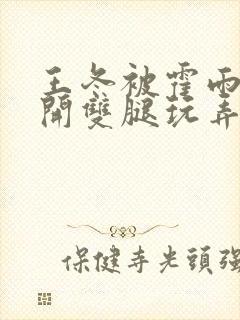 王冬被霍雨
開雙腿玩弄
保健寺光頭強